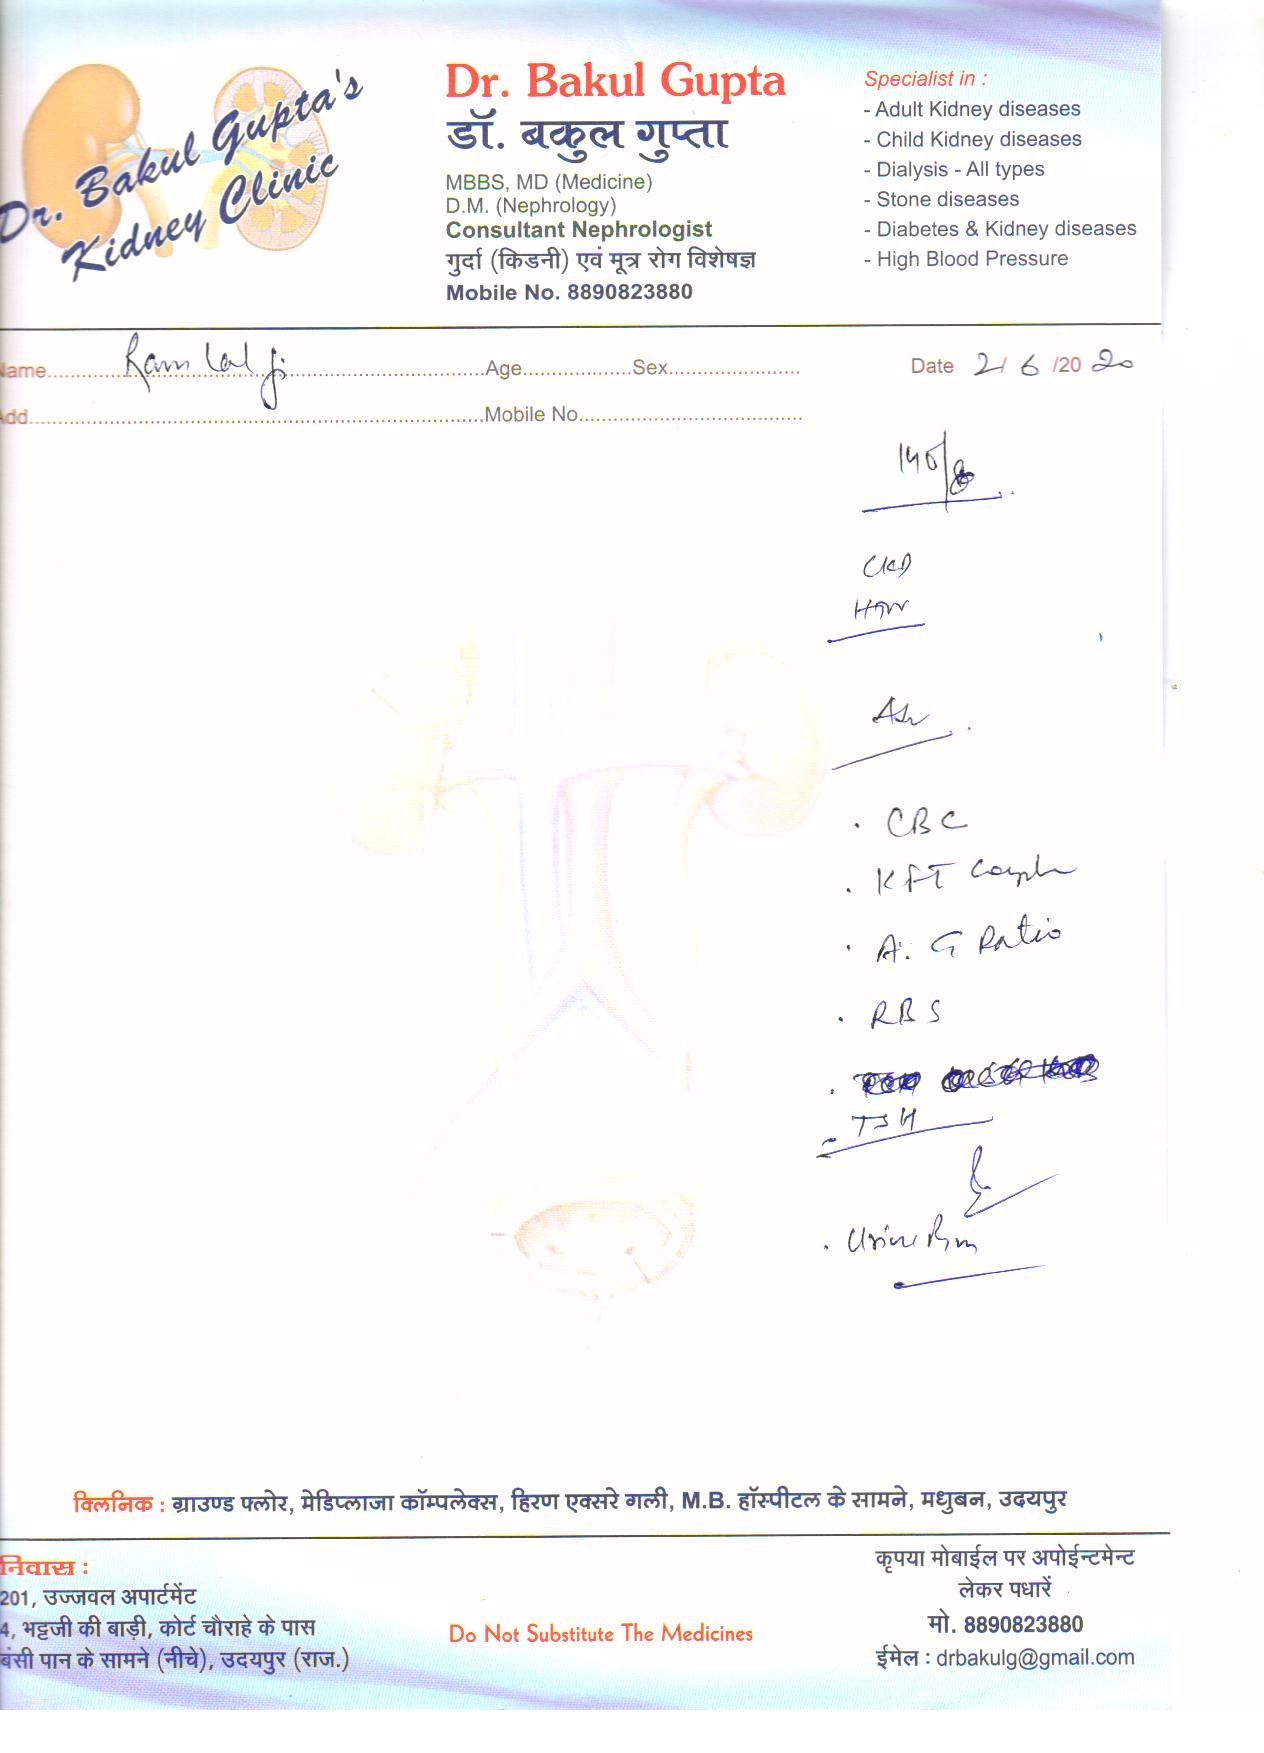 Dr. Bakul Gupta's
Kidney Clinic
Dr. Bakul Gupta
डॉ. बकुल गुप्ता
MBBS, MD (Medicine)
D.M. (Nephrology)
Consultant Nephrologist
गुर्दा (किडनी) एवं मूत्र रोग विशेषज्ञ
Mobile No. 8890823880
Specialist in :
- Adult Kidney diseases
- Child Kidney diseases
- Dialysis - All types
- Stone diseases
- Diabetes & Kidney diseases
- High Blood Pressure
Name Ram Lal ji Age Sex Date 2/ 6 /20 20
Add Mobile No.
CKD
HTN
. CBC
. KFT
. A. G Ratio
. RBS
TSH
. Urine
क्लिनिक : ग्राउण्ड फ्लोर, मेडिप्लाजा कॉम्पलेक्स, हिरण एक्सरे गली, M.B. हॉस्पीटल के सामने, मधुबन, उदयपुर
निवास :
201, उज्जवल अपार्टमेंट
4, भट्टजी की बाड़ी, कोर्ट चौराहे के पास
बंसी पान के सामने (नीचे), उदयपुर (राज.)
Do Not Substitute The Medicines
कृपया मोबाईल पर अपोईन्टमेन्ट
लेकर पधारें
मो. 8890823880
ईमेल : drbakulg@gmail.com